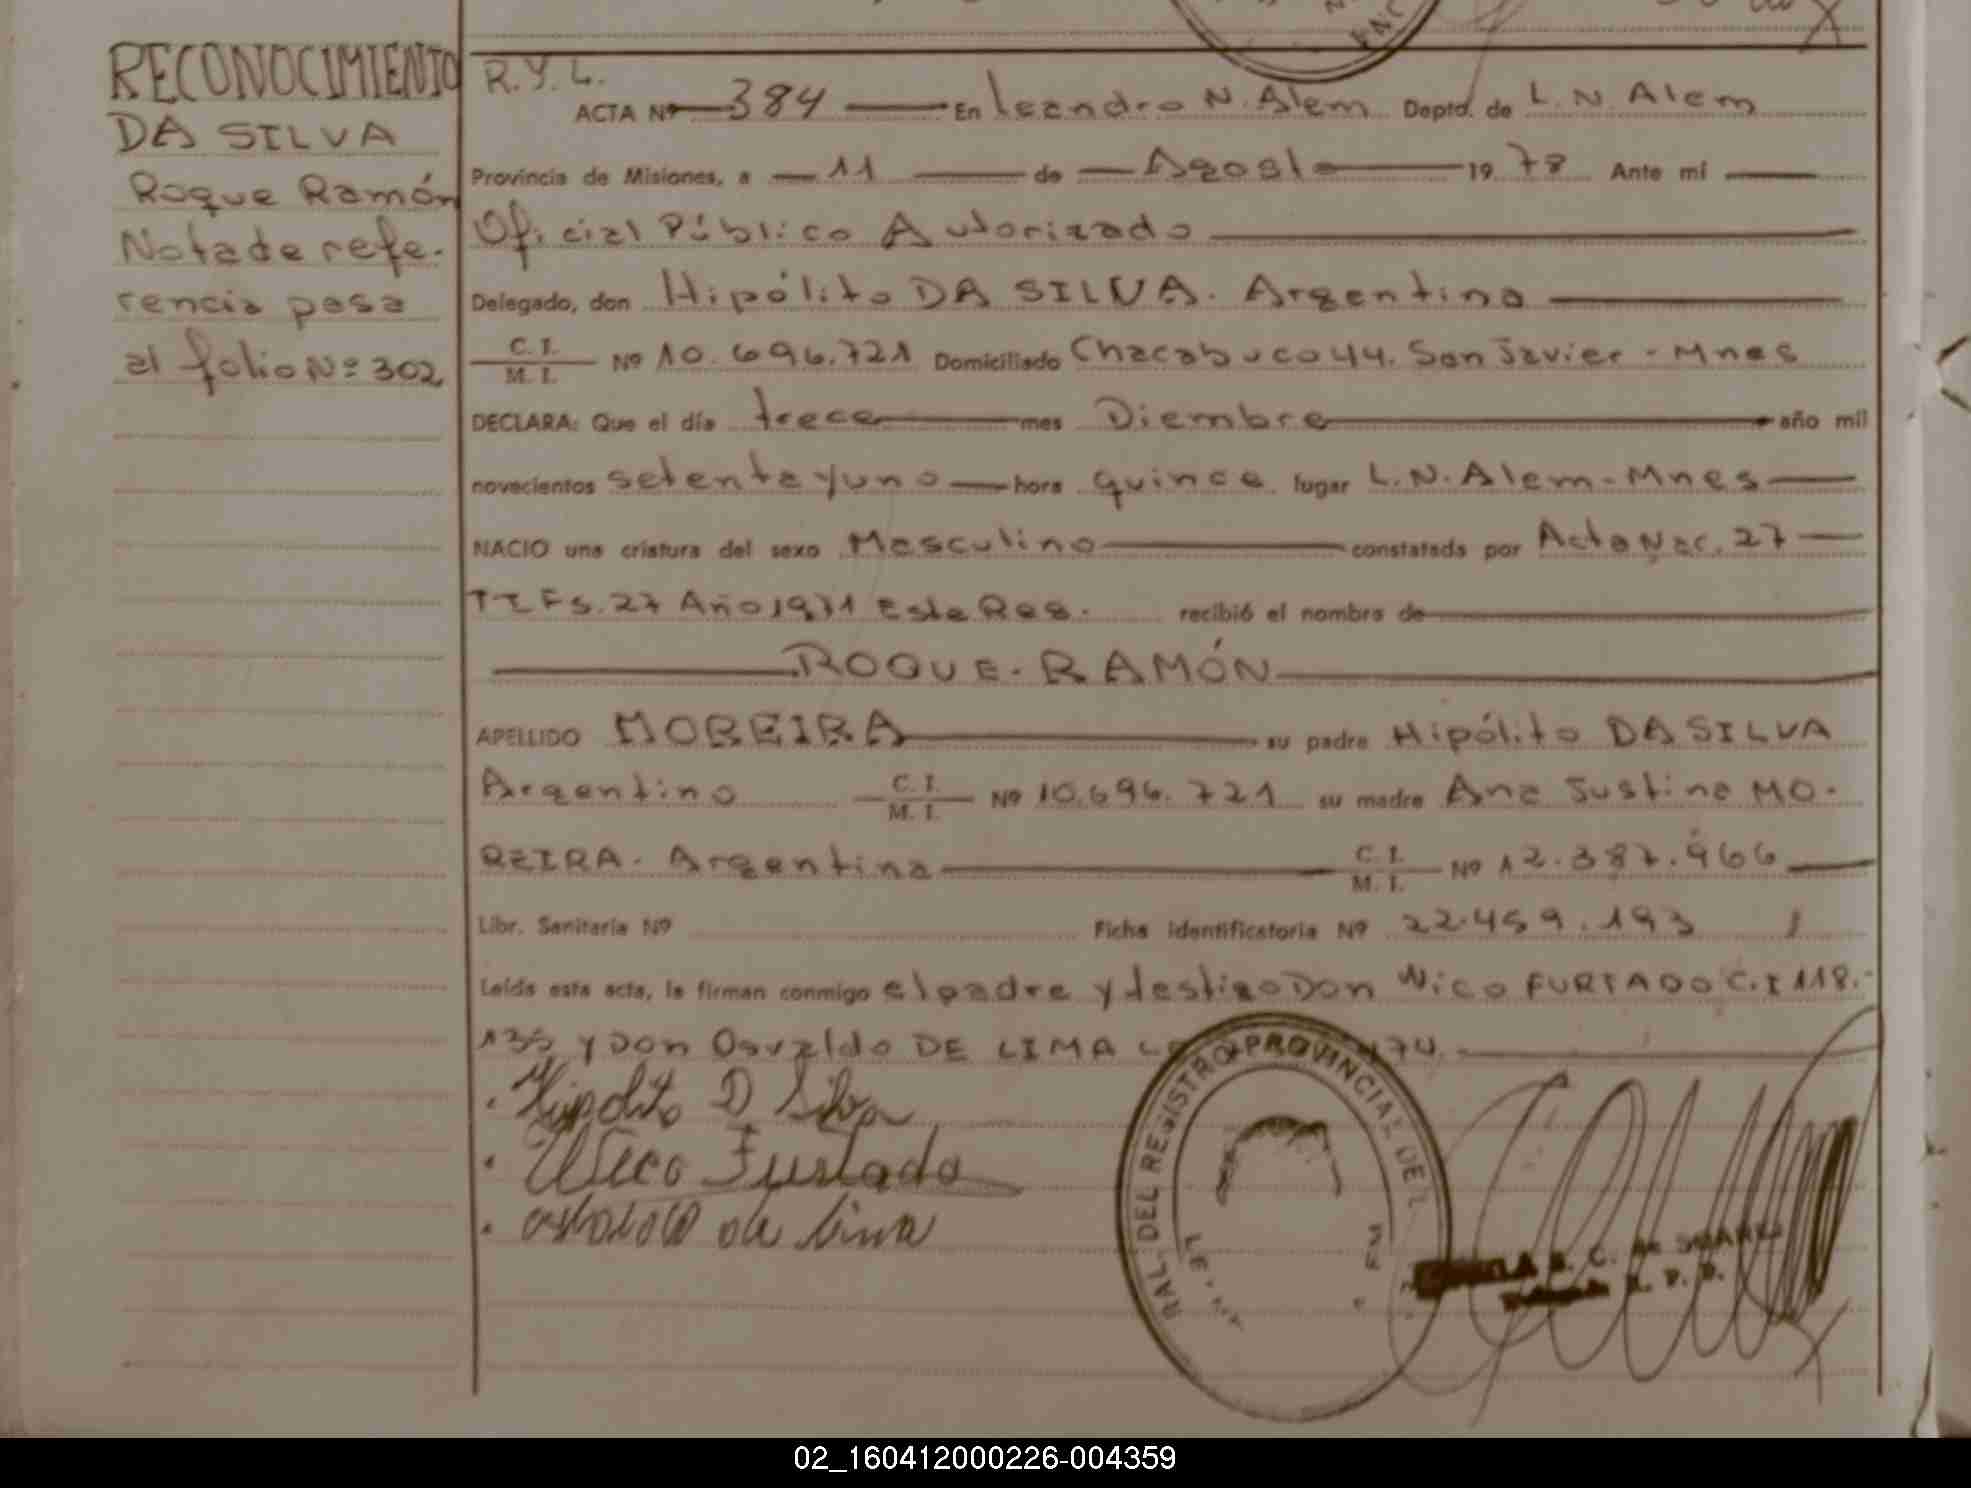 RECONOCIMIENTO
DA SILVA
Roque Ramón
Nota de refe-
rencia pasa
al folio Nº 302
R.Y.L.
ACTA Nº 384 En Leandro N. Alem Depto. de L. N. Alem
Provincia de Misiones, a 11 de Agosto 1978 Ante mí
Oficial Público Autorizado
Delegado, don Hipólito DA SILVA. Argentino
C. I.
M. I. Nº 10.696.721 Domiciliado Chacabuco 44. San Javier - Mnes
DECLARA: Que el día trece mes Diembre año mil
novecientos setenta y uno hora quince lugar L.N. Alem - Mnes
NACIO una criatura del sexo Masculino constatada por Acta Nac. 27
Fs. 27 Año 1971 Este Reg. recibió el nombre de
ROQUE - RAMÓN
APELLIDO MOREIRA su padre Hipólito DA SILVA
Argentino C. I.
M. I. Nº 10.696.721 su madre Ana Justina MO-
REIRA. Argentina C. I.
M. I. Nº 12.387.966
Libr. Sanitaria Nº Ficha identificatoria Nº 22.459.193
Leída esta acta, la firman conmigo el padre y testigo Don Nico FURTADO C.I 118.-
135 y Don Osvaldo DE LIMA 474.
Hipolito D Silva
Nico Furtado
de lima
RAL DEL REGISTRO PROVINCIAL DE L
B. C. de SUAREZ